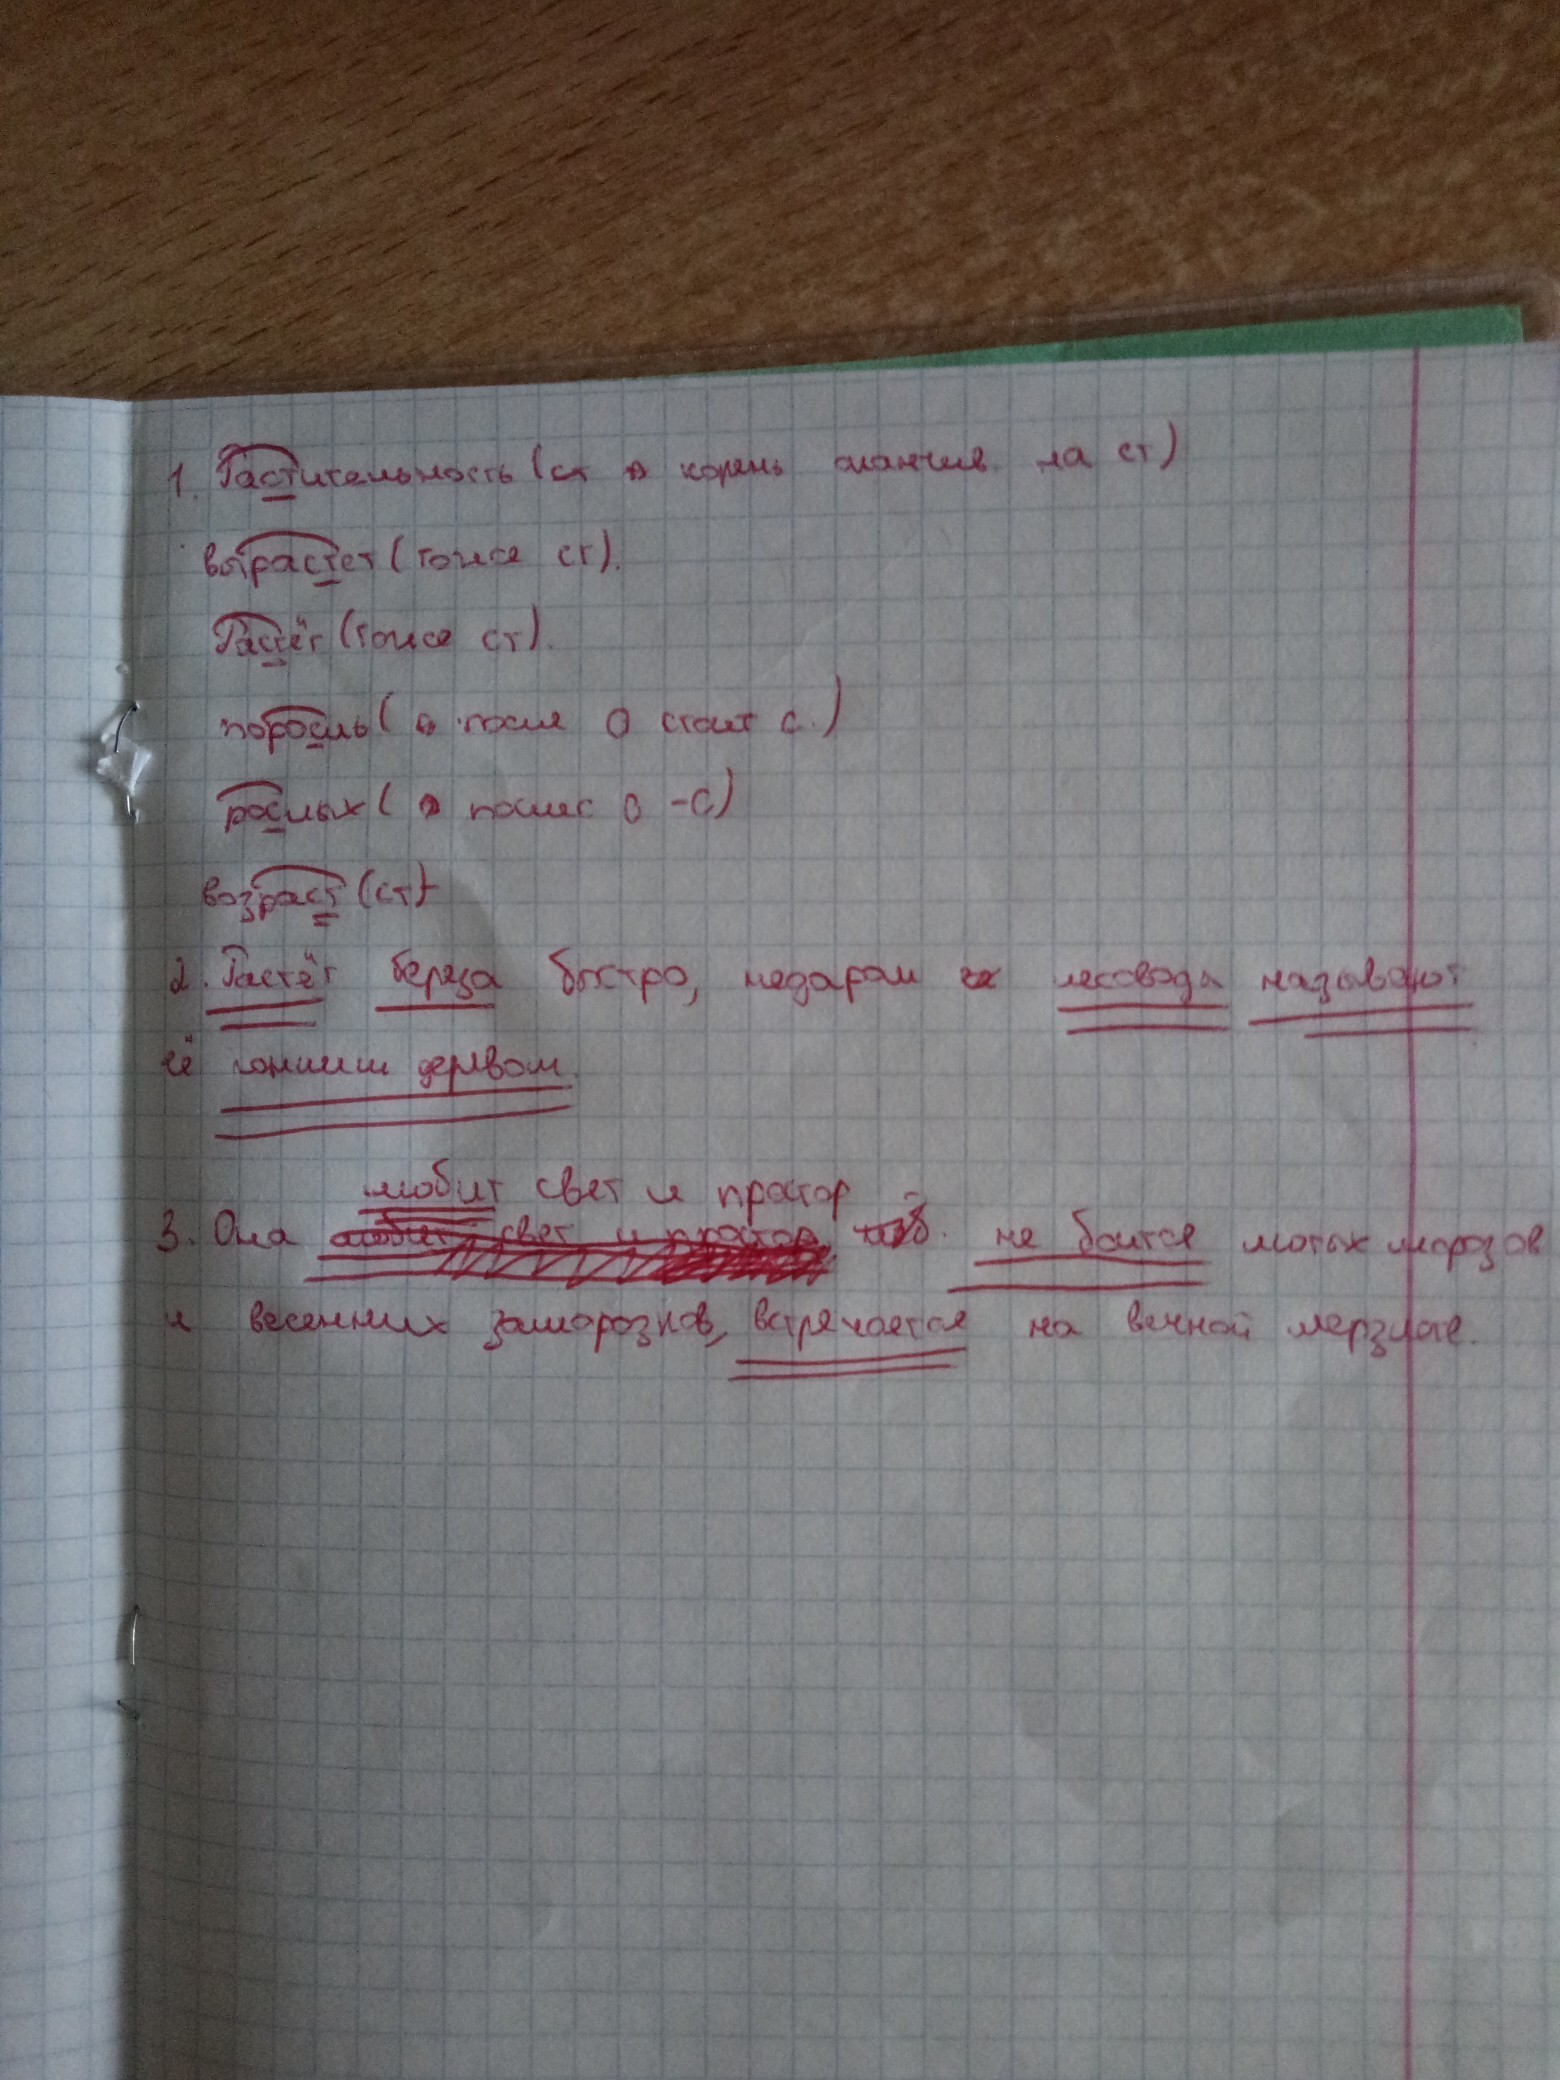 1. Растительность (ст корень оканчив. на ст)
вырастет (тоже ст).
Растёт (тоже ст).
поросль ( после о стоит с.)
рослых ( после о -с)
возраст (ст)
2. Растёт береза быстро, недаром лесоводы называют
её гонким деревом.
любит свет и простор
3. Она любит свет и простор не боится лютых морозов
и весенних заморозков, встречается на вечной мерзлоте.